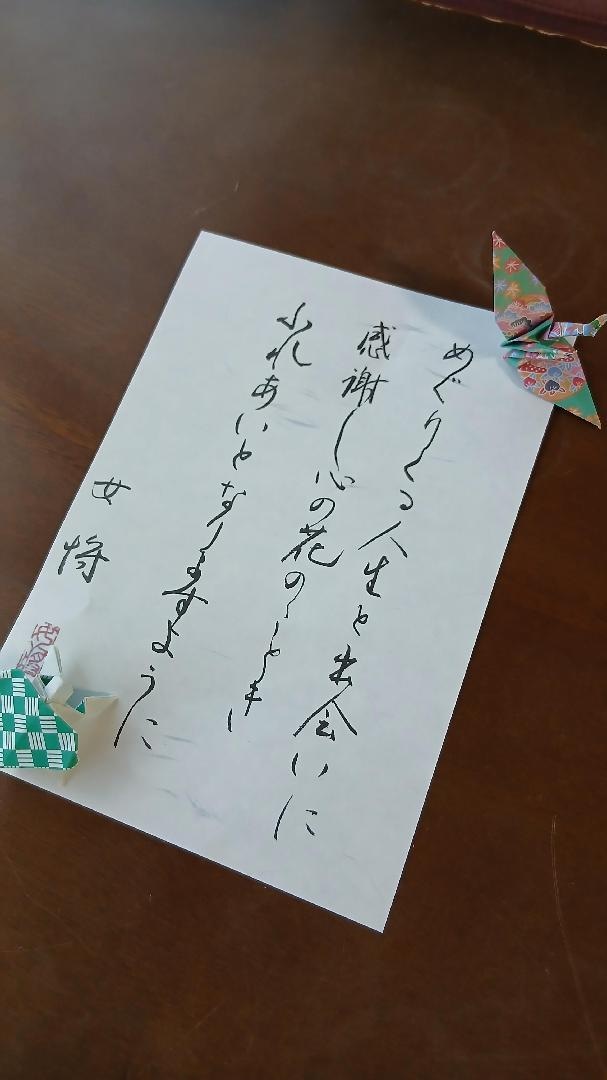 めぐりくる人生と出会いに
感謝し心の花のごとき
ふれあいとなりますように
女将